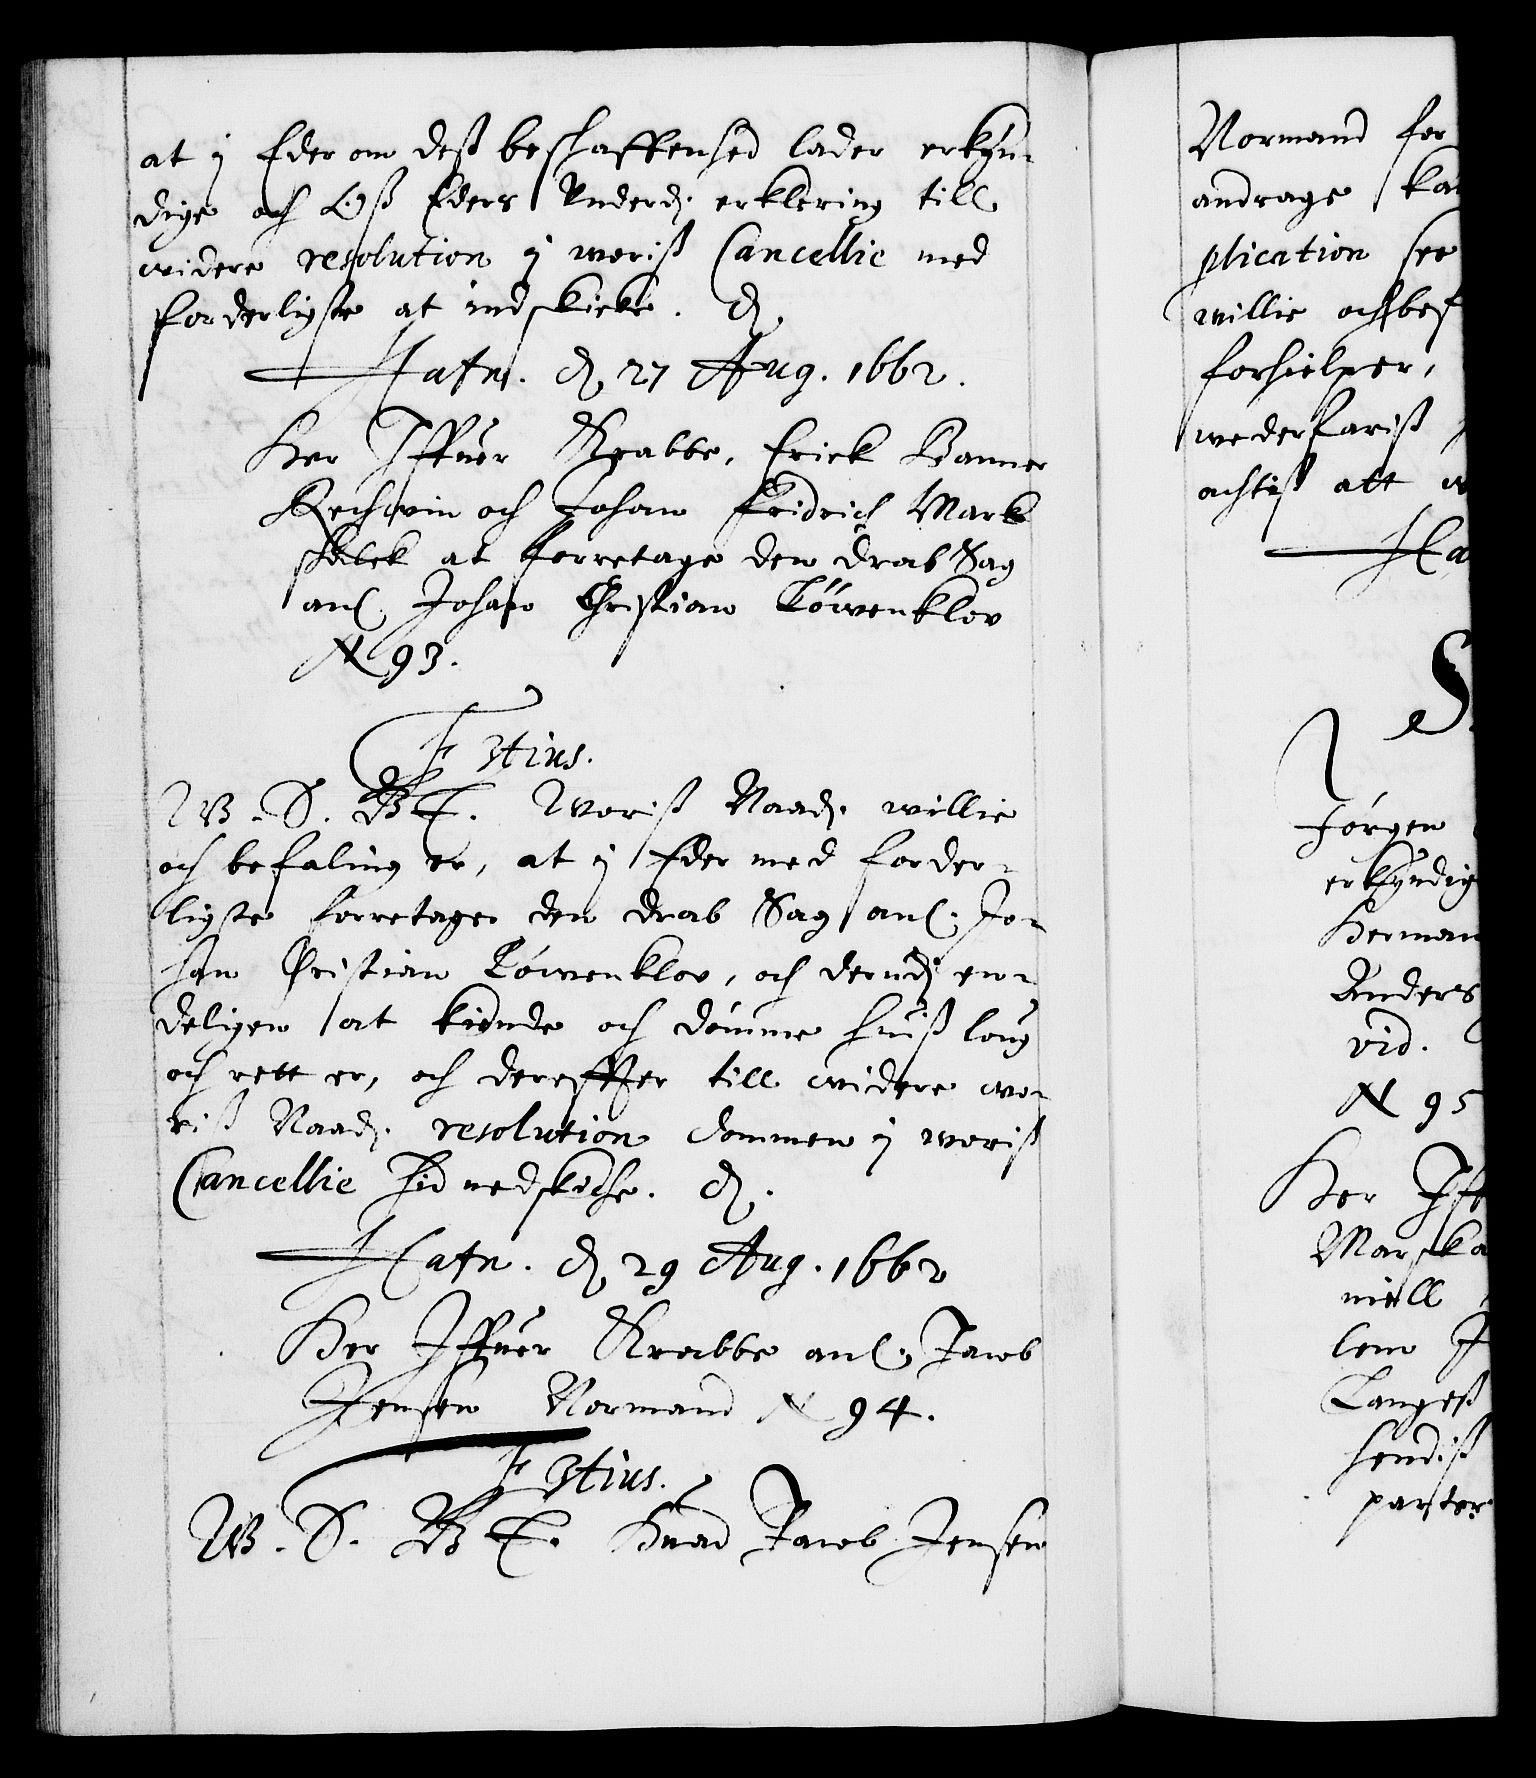 at j Eder om deß beschaffenhed lader erkyn-
dige och Oß Eders Underd: erklering till
widere resolution j woriß Cancellie med
forderligste at indskicke. D.
Hafn. d. 27 Aug. 1662.
Her Iffuer Krabbe, Erick Banner
Rechwin och Johan Fridrich Mark
skalck at forretage den drab Sag
anl. Johan Christian Löwenklov
N 93.
F 3tius.
W. S. B T. Woriß Naad: willie
och befaling er, at j Eder med forder-
ligste forretager den drab Sag anl. Jo-
han Christian Löwenklov, och derudj en-
deligen at kiende och dömme huiß loug
och rett er, och derefter till widere wo-
riß Naad: resolution dommen j woriß
Cancellie hid nedskiche. D.
Hafn. d. 29 Aug. 1662
Her Iffuer Krabbe anl. Jacob
Jensen Normand N 94.
F 3tius.
W. S. B T. Huad Jacob Jensen
Normand for
andrage
plication see
willie och bef
forhielper,
wederfariß
achtiß att
Ha
S
Jörgen
erkyndig
Herman
Anders
vid.
N 95
Her Iff
Marska
niell
lem
Langeß
hendiß
parter